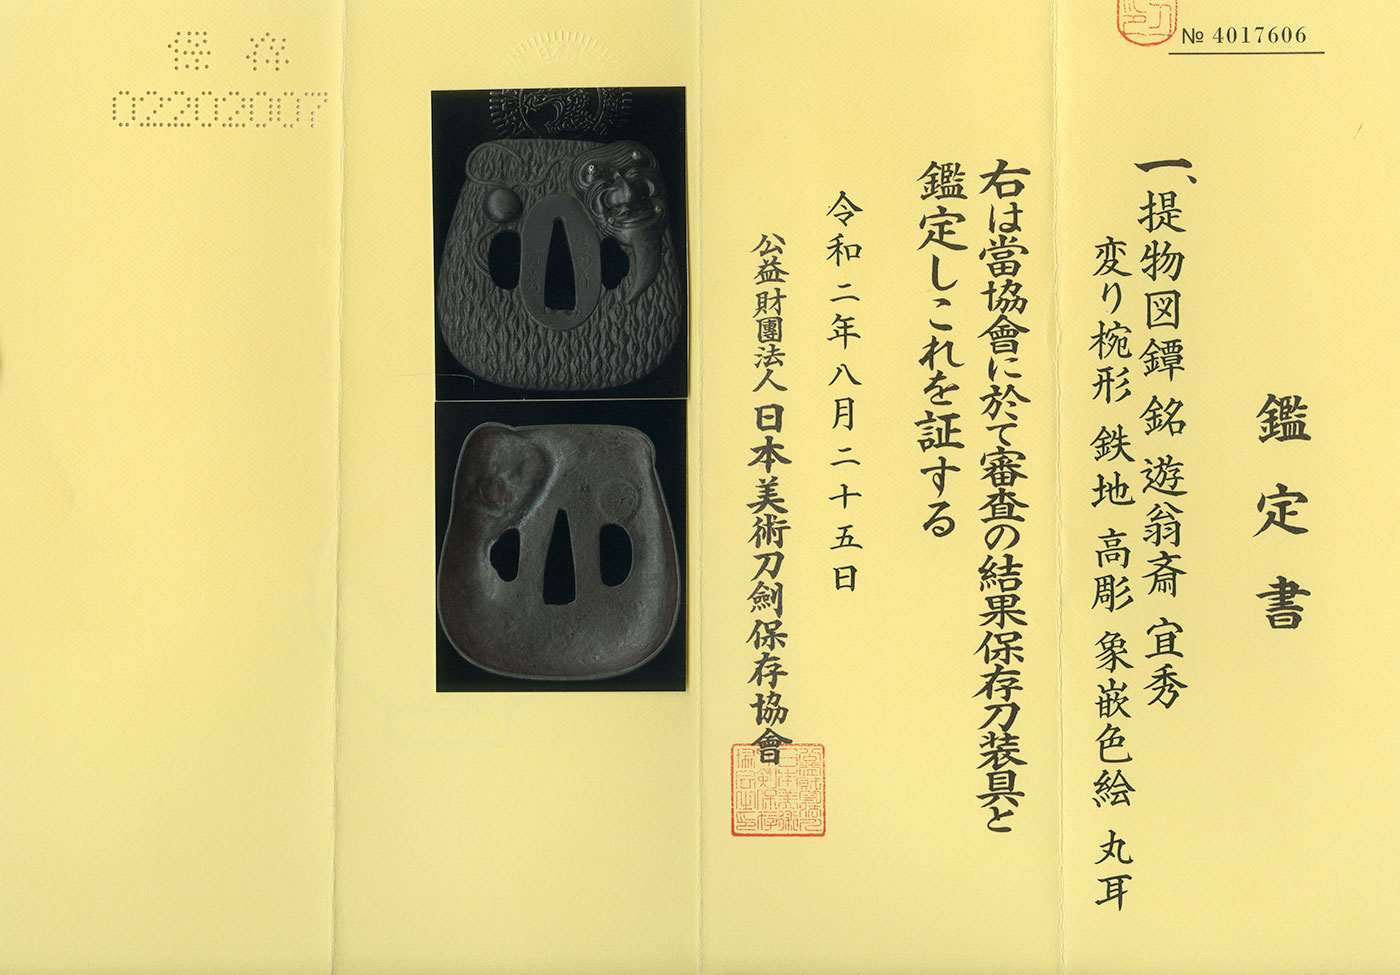 № 4017606
鑑定書
一、提物図鐔 銘 遊翁斎 宜秀
変り椀形 鉄地 高彫 象嵌色絵 丸耳
右は當協會に於て審査の結果保存刀装具と
鑑定しこれを証する
令和二年八月二十五日
公益財團法人 日本美術刀劍保存協會
保存
02202007